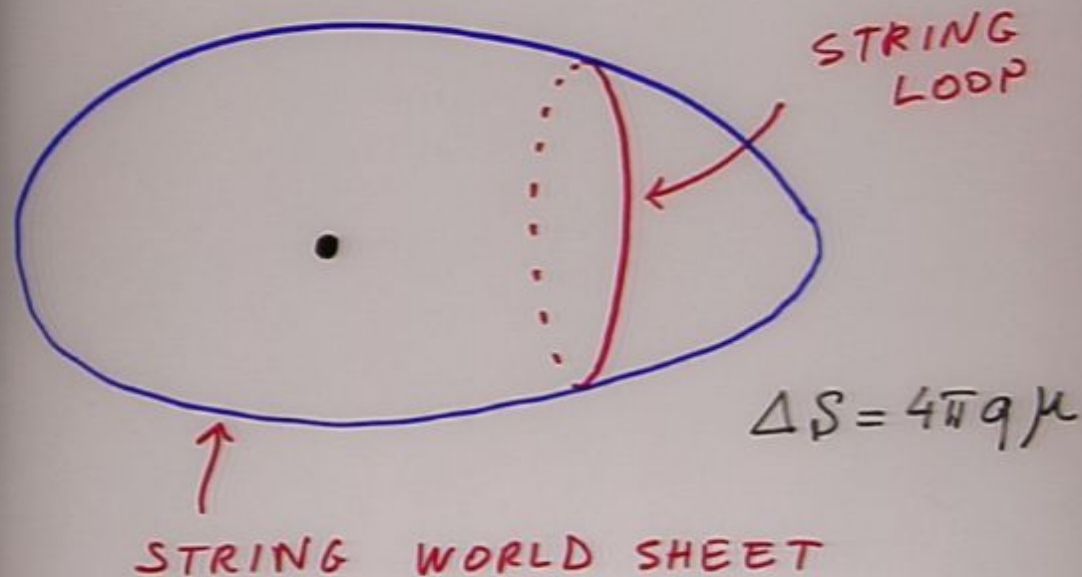 STRING
LOOP
ΔS = 4π q μ
STRING WORLD SHEET